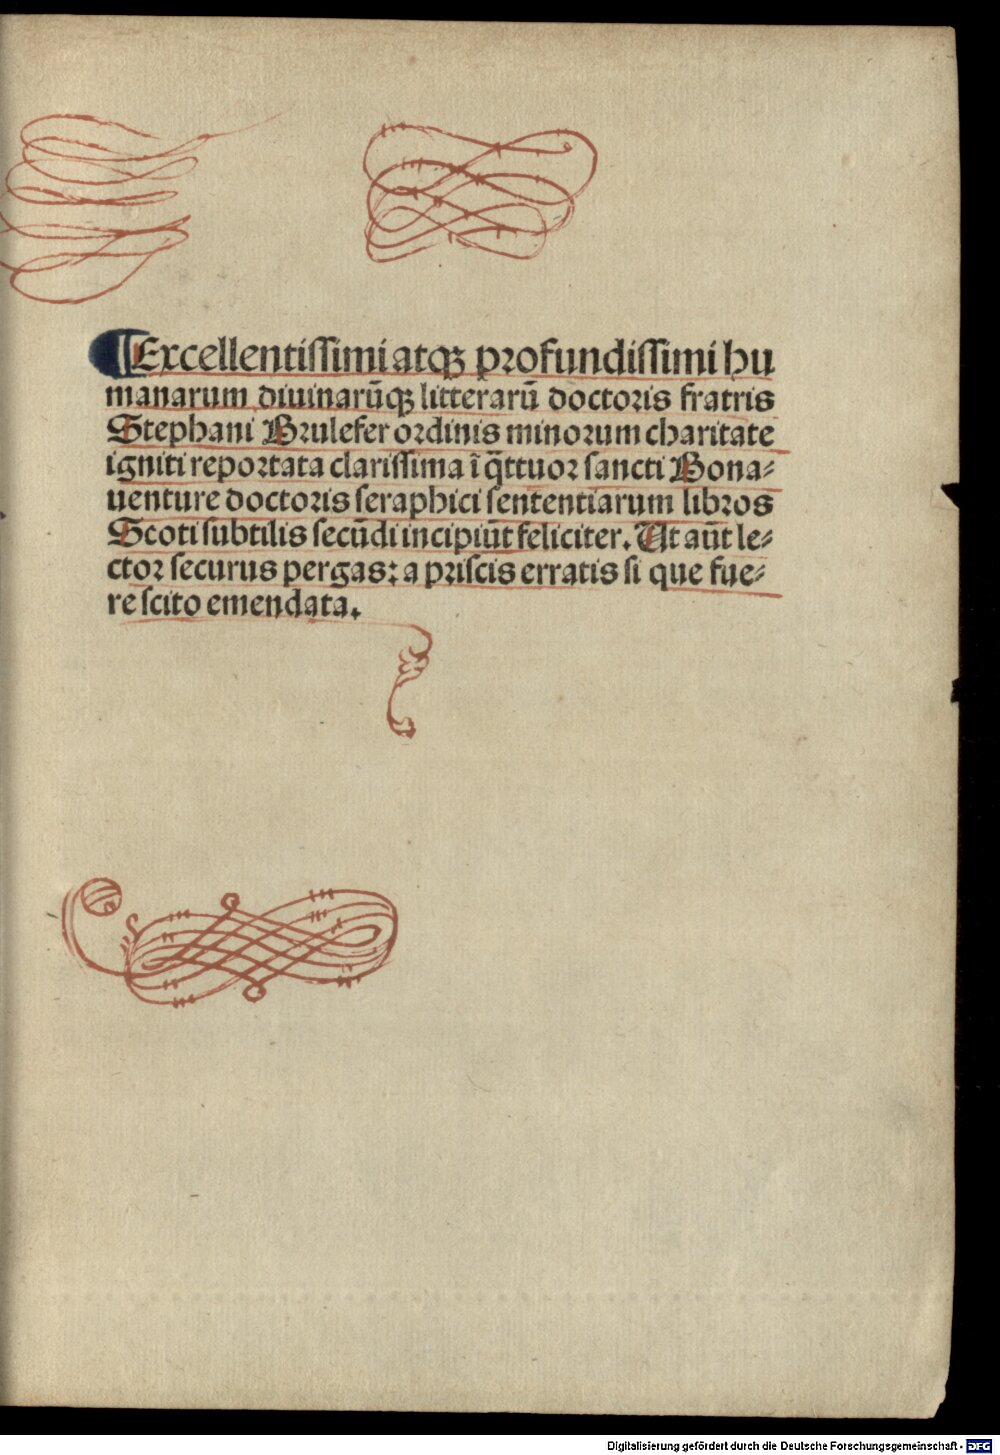 ¶Excellentissimi atqꝫ profundissimi hu
manarum diuinarūqꝫ litterarū doctoris fratris
Stephani Brulefer ordinis minorum charitate
igniti reportata clarissima ī q̄ttuor sancti Bona⸗
uenture doctoris seraphici sententiarum libros
Scoti subtilis secūdi incipiūt feliciter. Ut aūt le⸗
ctor securus pergas: a priscis erratis si que fue⸗
re scito emendata.
Digitalisierung gefördert durch die Deutsche Forschungsgemeinschaft - DFG